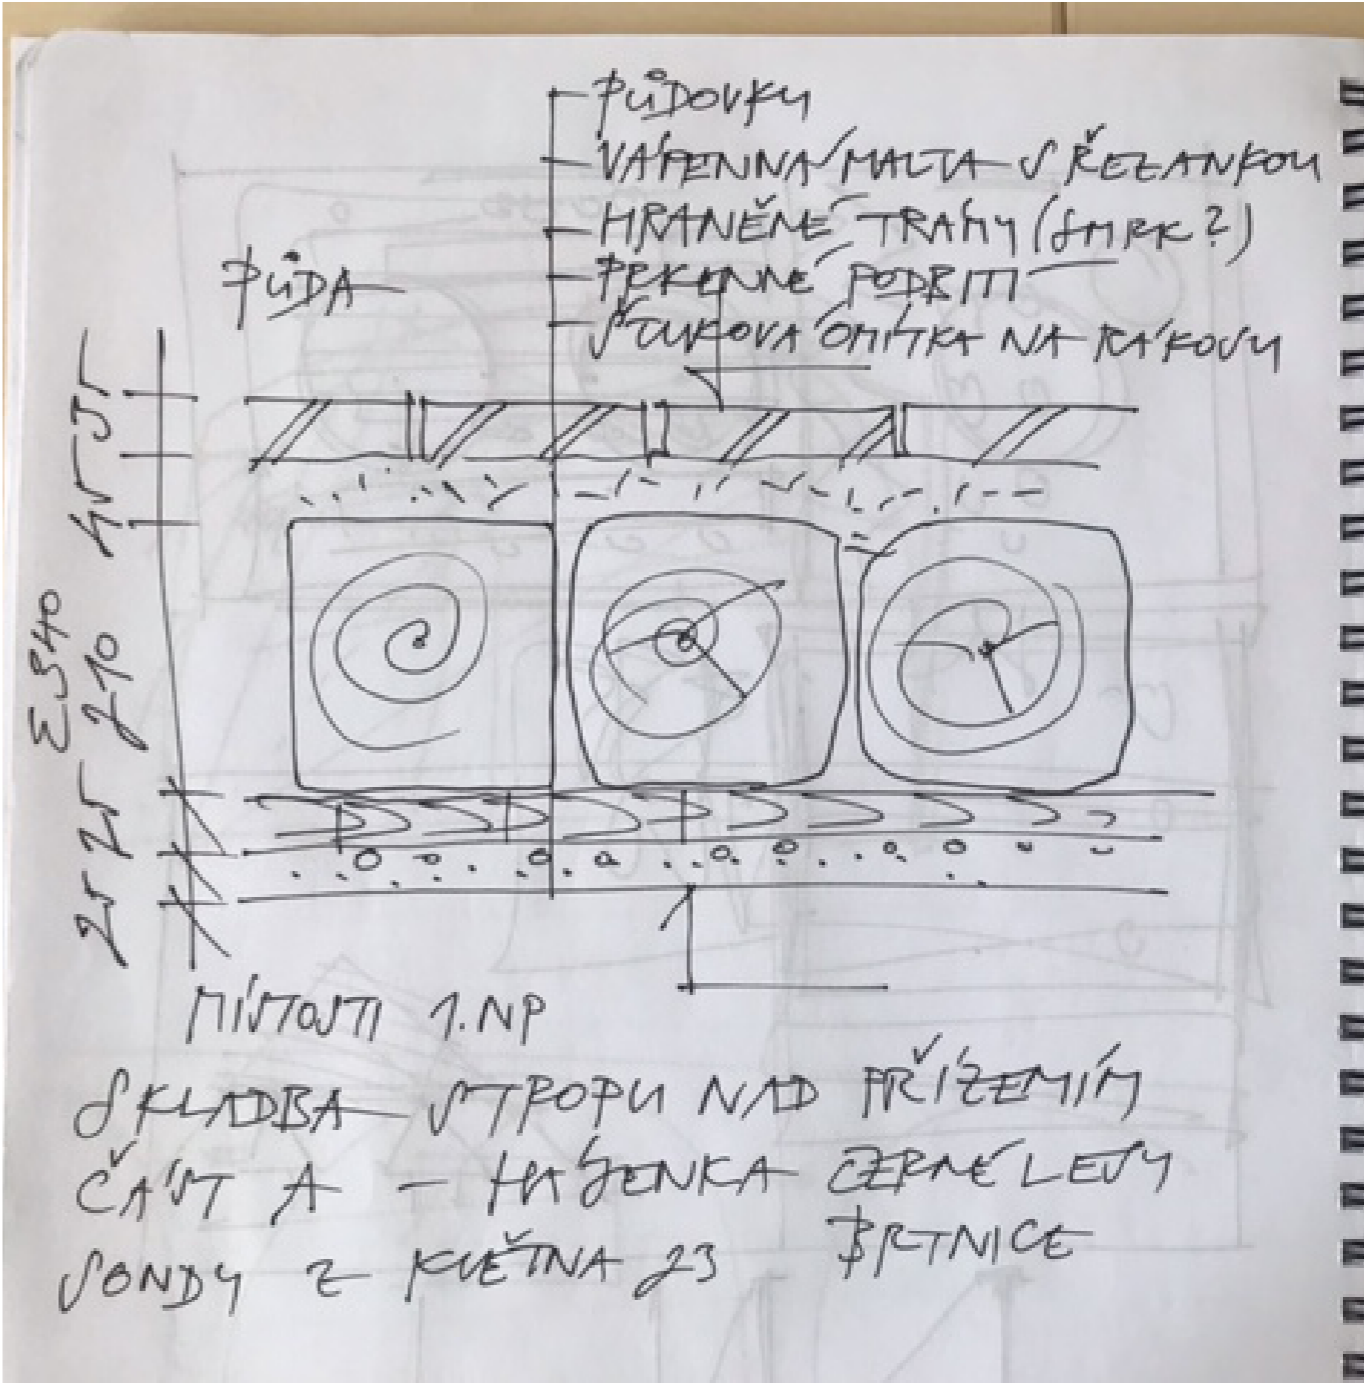 PŮDOVKY
VÁPENNÁ MALTA S ŘEZANKOU
HRANĚNÉ TRÁMY (SMRK?)
PRKENNÉ PODBITÍ
ŠTUKOVÁ OMÍTKA NA RÁKOSU
PŮDA
45
210
Σ340
25
25
MÍSTOSTI 1.NP
SKLADBA STROPU NAD PŘÍZEMÍM
ČÁST A - HÁJENKA ČERNÉ LESY
BRTNICE
SONDY Z KVĚTNA 23